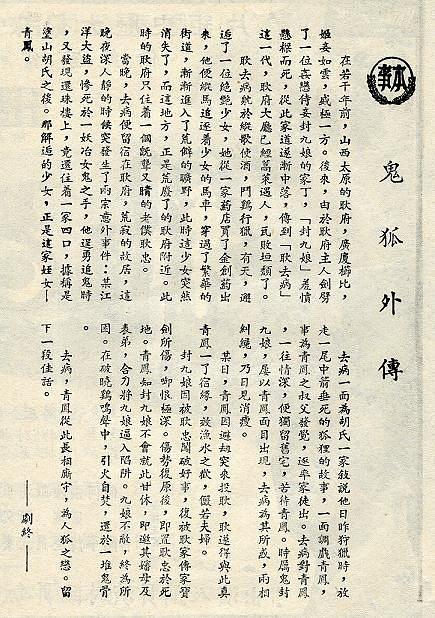 本事
鬼狐外傳
在若干年前，山西太原的耿府，廣廈櫛比，
姬妾如雲，盛極一方。後來，由於耿府主人劍劈
了一位妄戀侍妾封九娘的家丁，「封九娘」羞憤
懸樑而死，從此家道逐漸中落，傳到「耿去病」
這一代，耿府大廳已經蒿萊遇人，瓦敗垣頹了。
耿去病就於縱歌使酒，鬥鷄行獵，有天，邂
逅了一位絕艷少女，她從一家葯店買了金創葯出
來，他便縱馬追逐着少女的馬車，穿過了繁華的
街道，漸漸進入了荒僻的曠野，此時這少女突然
消失了，而這地方，正是荒廢了的耿府附近。此
時的耿府只住着一個既聾又瞶的老僕耿忠。
當晚，去病便留宿在耿府，荒寂的故居，這
晚夜深人靜的時候突發生了兩宗意外事件：某江
洋大盜，慘死於一妖冶女鬼之手，他逞勇追鬼時
，又發現還珠樓上，竟還住着一家四口，據稱是
塗山胡氏之後。那邂逅的少女，正是這家姪女—
青鳳。
去病一面為胡氏一家敍說他日昨狩獵時，放
走一尾中箭垂死的狐狸的故事，一面調戲青鳳，
事為青鳳之叔父發覺，遂率家徒出。去病對青鳳
，一往情深，便獨留舊宅，苦待青鳳。時厲鬼封
九娘，屢以青鳳面目出現，去病為其所惑，兩相
糾纏，乃日見消瘦。
某日，青鳳因避刧突來投耿，耿遂得與此真
青鳳一了宿緣，效漁水之歡，儼若夫婦。
封九娘因被耿忠闖破好事，復被耿家傳家寶
劍所傷，啣恨極深。傷勢復原後，即置耿忠於死
地。青鳳知封九娘不會就此甘休，即邀其嬸母及
表弟，合力將九娘逼入陷阱。九娘不敵，終為所
困。在破曉鷄鳴聲中，引火自焚，還於一堆鬼骨
。
去病，青鳳從此長相廝守，為人狐之戀。留
下一段佳話。
——劇終——